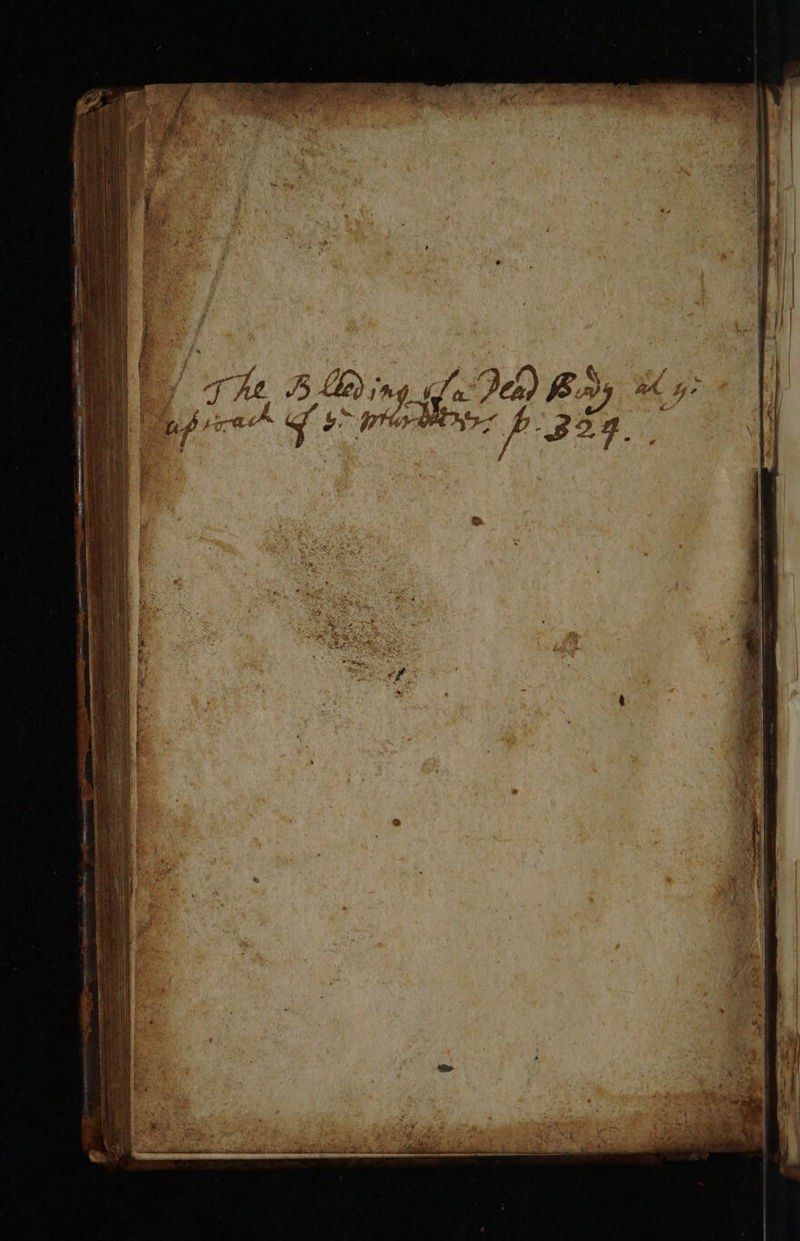 The Bleeding of a Dead Body at ye
aproach of ye murderer p. 324.